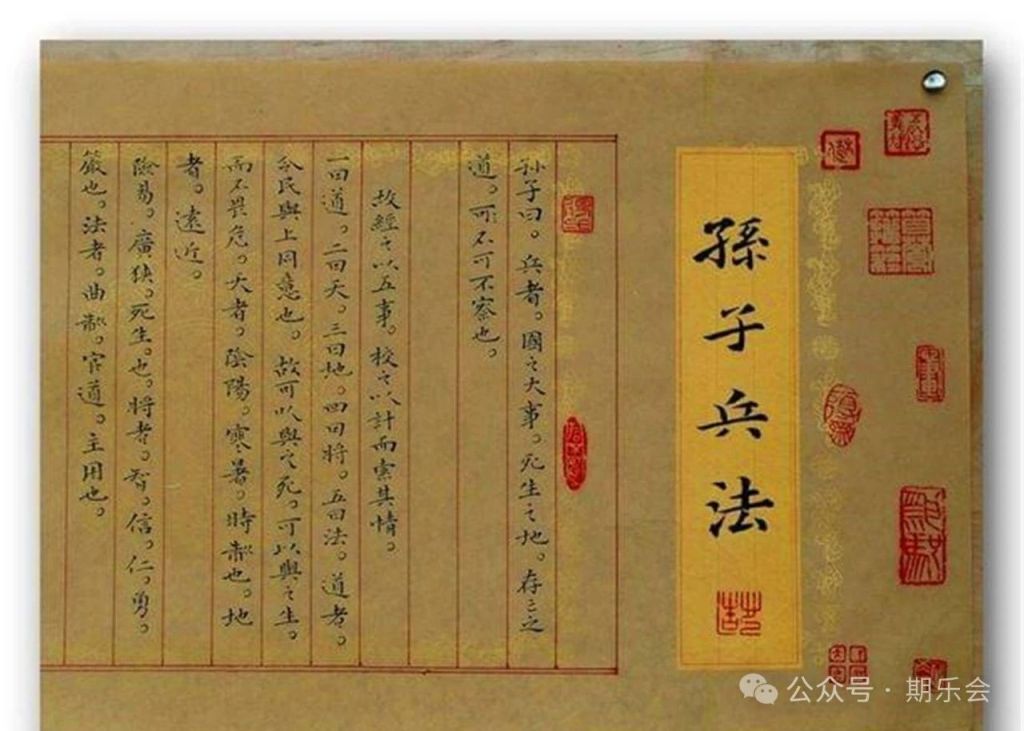 孫子兵法
孙子曰。兵者。國之大事。死生之地。存亡之
道。可不可不察也。
故經之以五事。校之以計而索其情。
一曰道。二曰天。三曰地。四曰将。五曰法。道者。
令民與上同意也。故可以與之死。可以與之生。
而不畏危。天者。陰陽。寒暑。時制也。地
者。遠近。
險易。廣狹。死生。也。将者。智。信。仁。勇。
嚴也。法者。曲制。官道。主用也。
公众号 · 期乐会